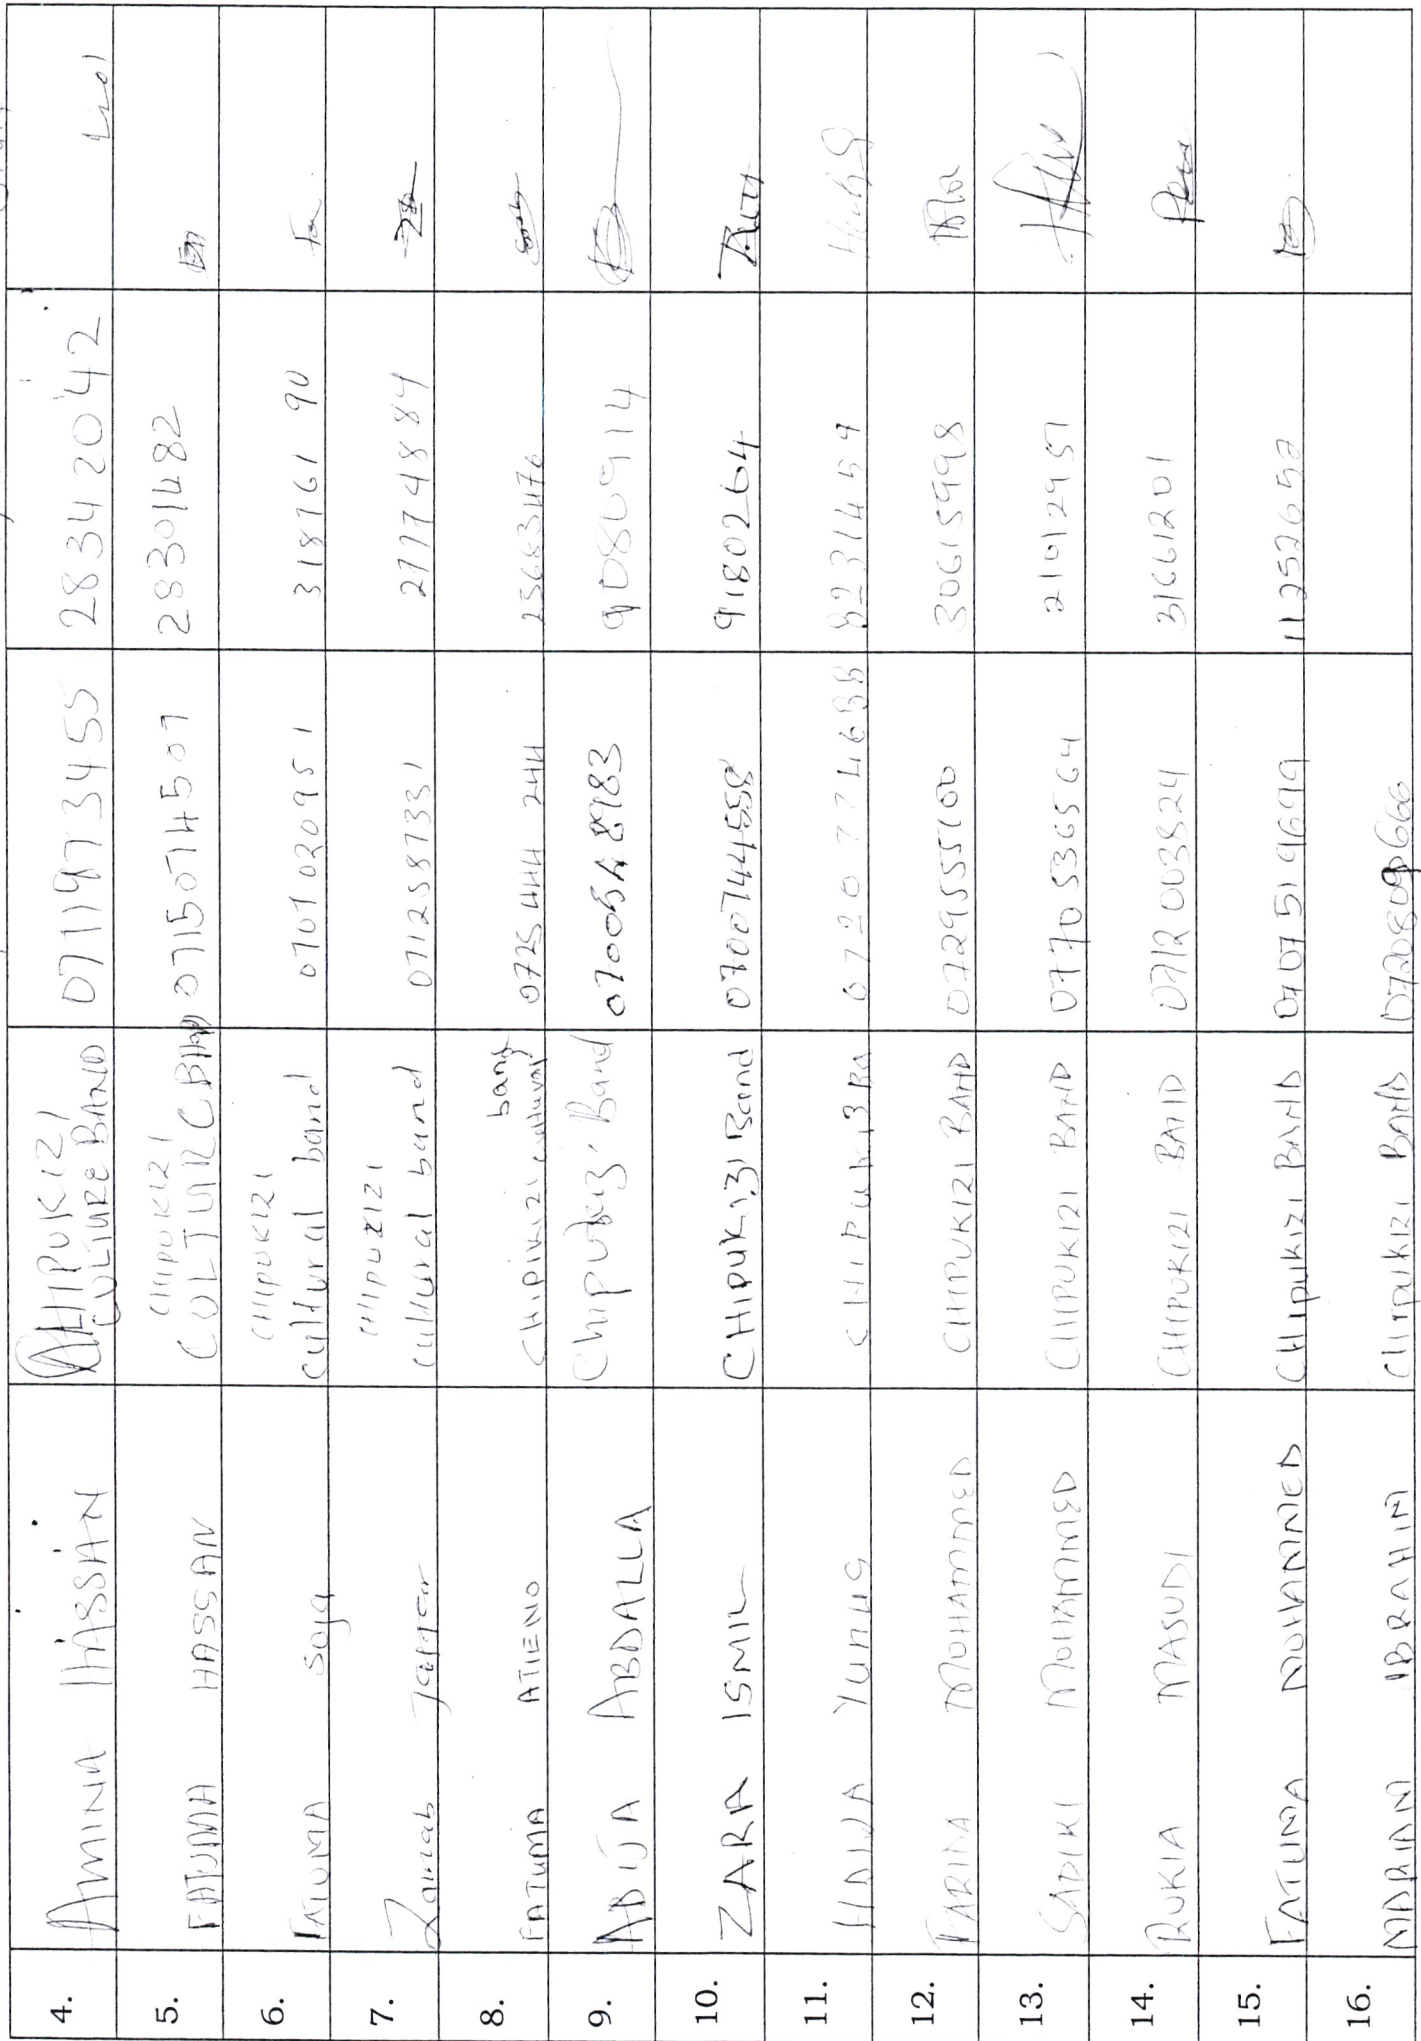 4. AMINA HASSAN CHIPUKIZI CULTURE BAND 0711973455 28342042
5. FATUMA HASSAN CHIPUKIZI CULTURE BAND 0715074507 28301482
6. FATUMA Soja CHIPUKIZI Cultural band 0707020951 31876190
7. Zainab Jaffer CHIPUKIZI Cultural band 0712587331 27774884
8. FATUMA ATIENO CHIPIKIZI cultural band 0725444244 25683476
9. ABUJA ABDALLA Chipukizi Band 9080914
10. ZARA ISMIL CHIPUKIZI Band 0700744558 9180264
11. Yunus CHIPUKIZI 8231459
12. FARIDA MOHAMMED CHIPUKIZI BAND 0729555100 30615998
13. SADIKI MOHAMMED CHIPUKIZI BAND 0770536564
14. RUKIA MASUDI CHIPUKIZI BAND 0712003824 31661201
15. FATUMA MOHAMMED CHIPUKIZI BAND 0707519699 11252652
16. MARIAM IBRAHIM CHIPUKIZI BAND